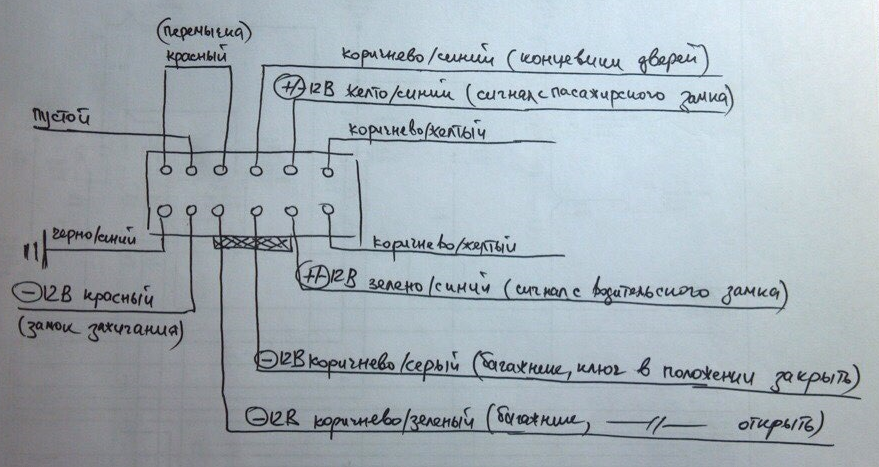 (перемычка)
красный
коричнево/синий (концевики дверей)
+/-12В желто/синий (сигнал с пасажирского замка)
пустой
коричнево/желтый
черно/синий
коричнево/желтый
+/-12В зелено/синий (сигнал с водительского замка)
-12В красный
(замок зажигания)
-12В коричнево/серый (багажние, ключ в положении закрыть)
-12В коричнево/зеленый (багажние, —//— открыть)